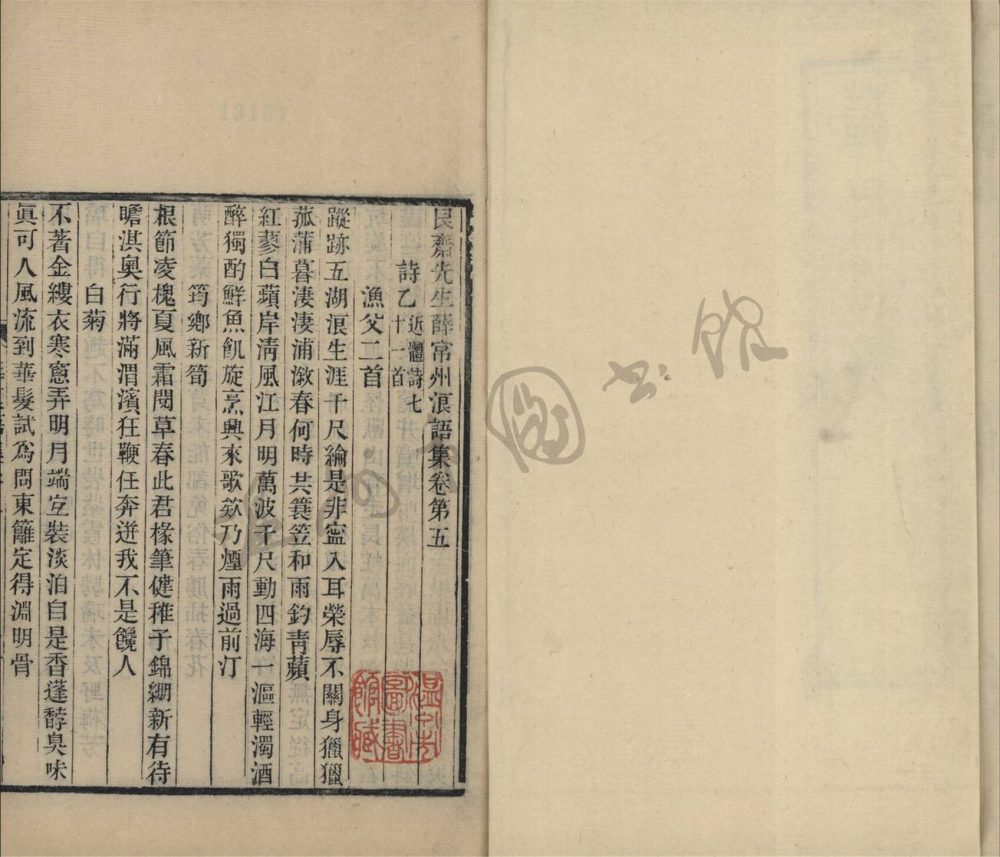 艮齋先生薛常州浪語集卷第五
詩乙近體詩七十一首
漁父二首
蹤跡五湖浪生涯千尺綸是非寧入耳榮辱不關身獵獵
菰蒲暮淒淒浦漵春何時共蓑笠和雨釣青蘋
紅蓼白蘋岸清風江月明萬波千尺動四海一漚輕濁酒
醉獨酌鮮魚飢旋烹興來歌欸乃煙雨過前汀
筠鄉新筍
根節凌槐夏風霜閱草春此君椽筆健稚子錦綳新有待
瞻淇奧行將滿渭濱狂鞭任奔迸我不是饞人
白菊
不著金縷衣寒窻弄明月端宜裝淡泊自是香蓬馞臭味
眞可人風流到華髮試爲問東籬定得淵明骨
溫州市
圖書
館藏
圖書館